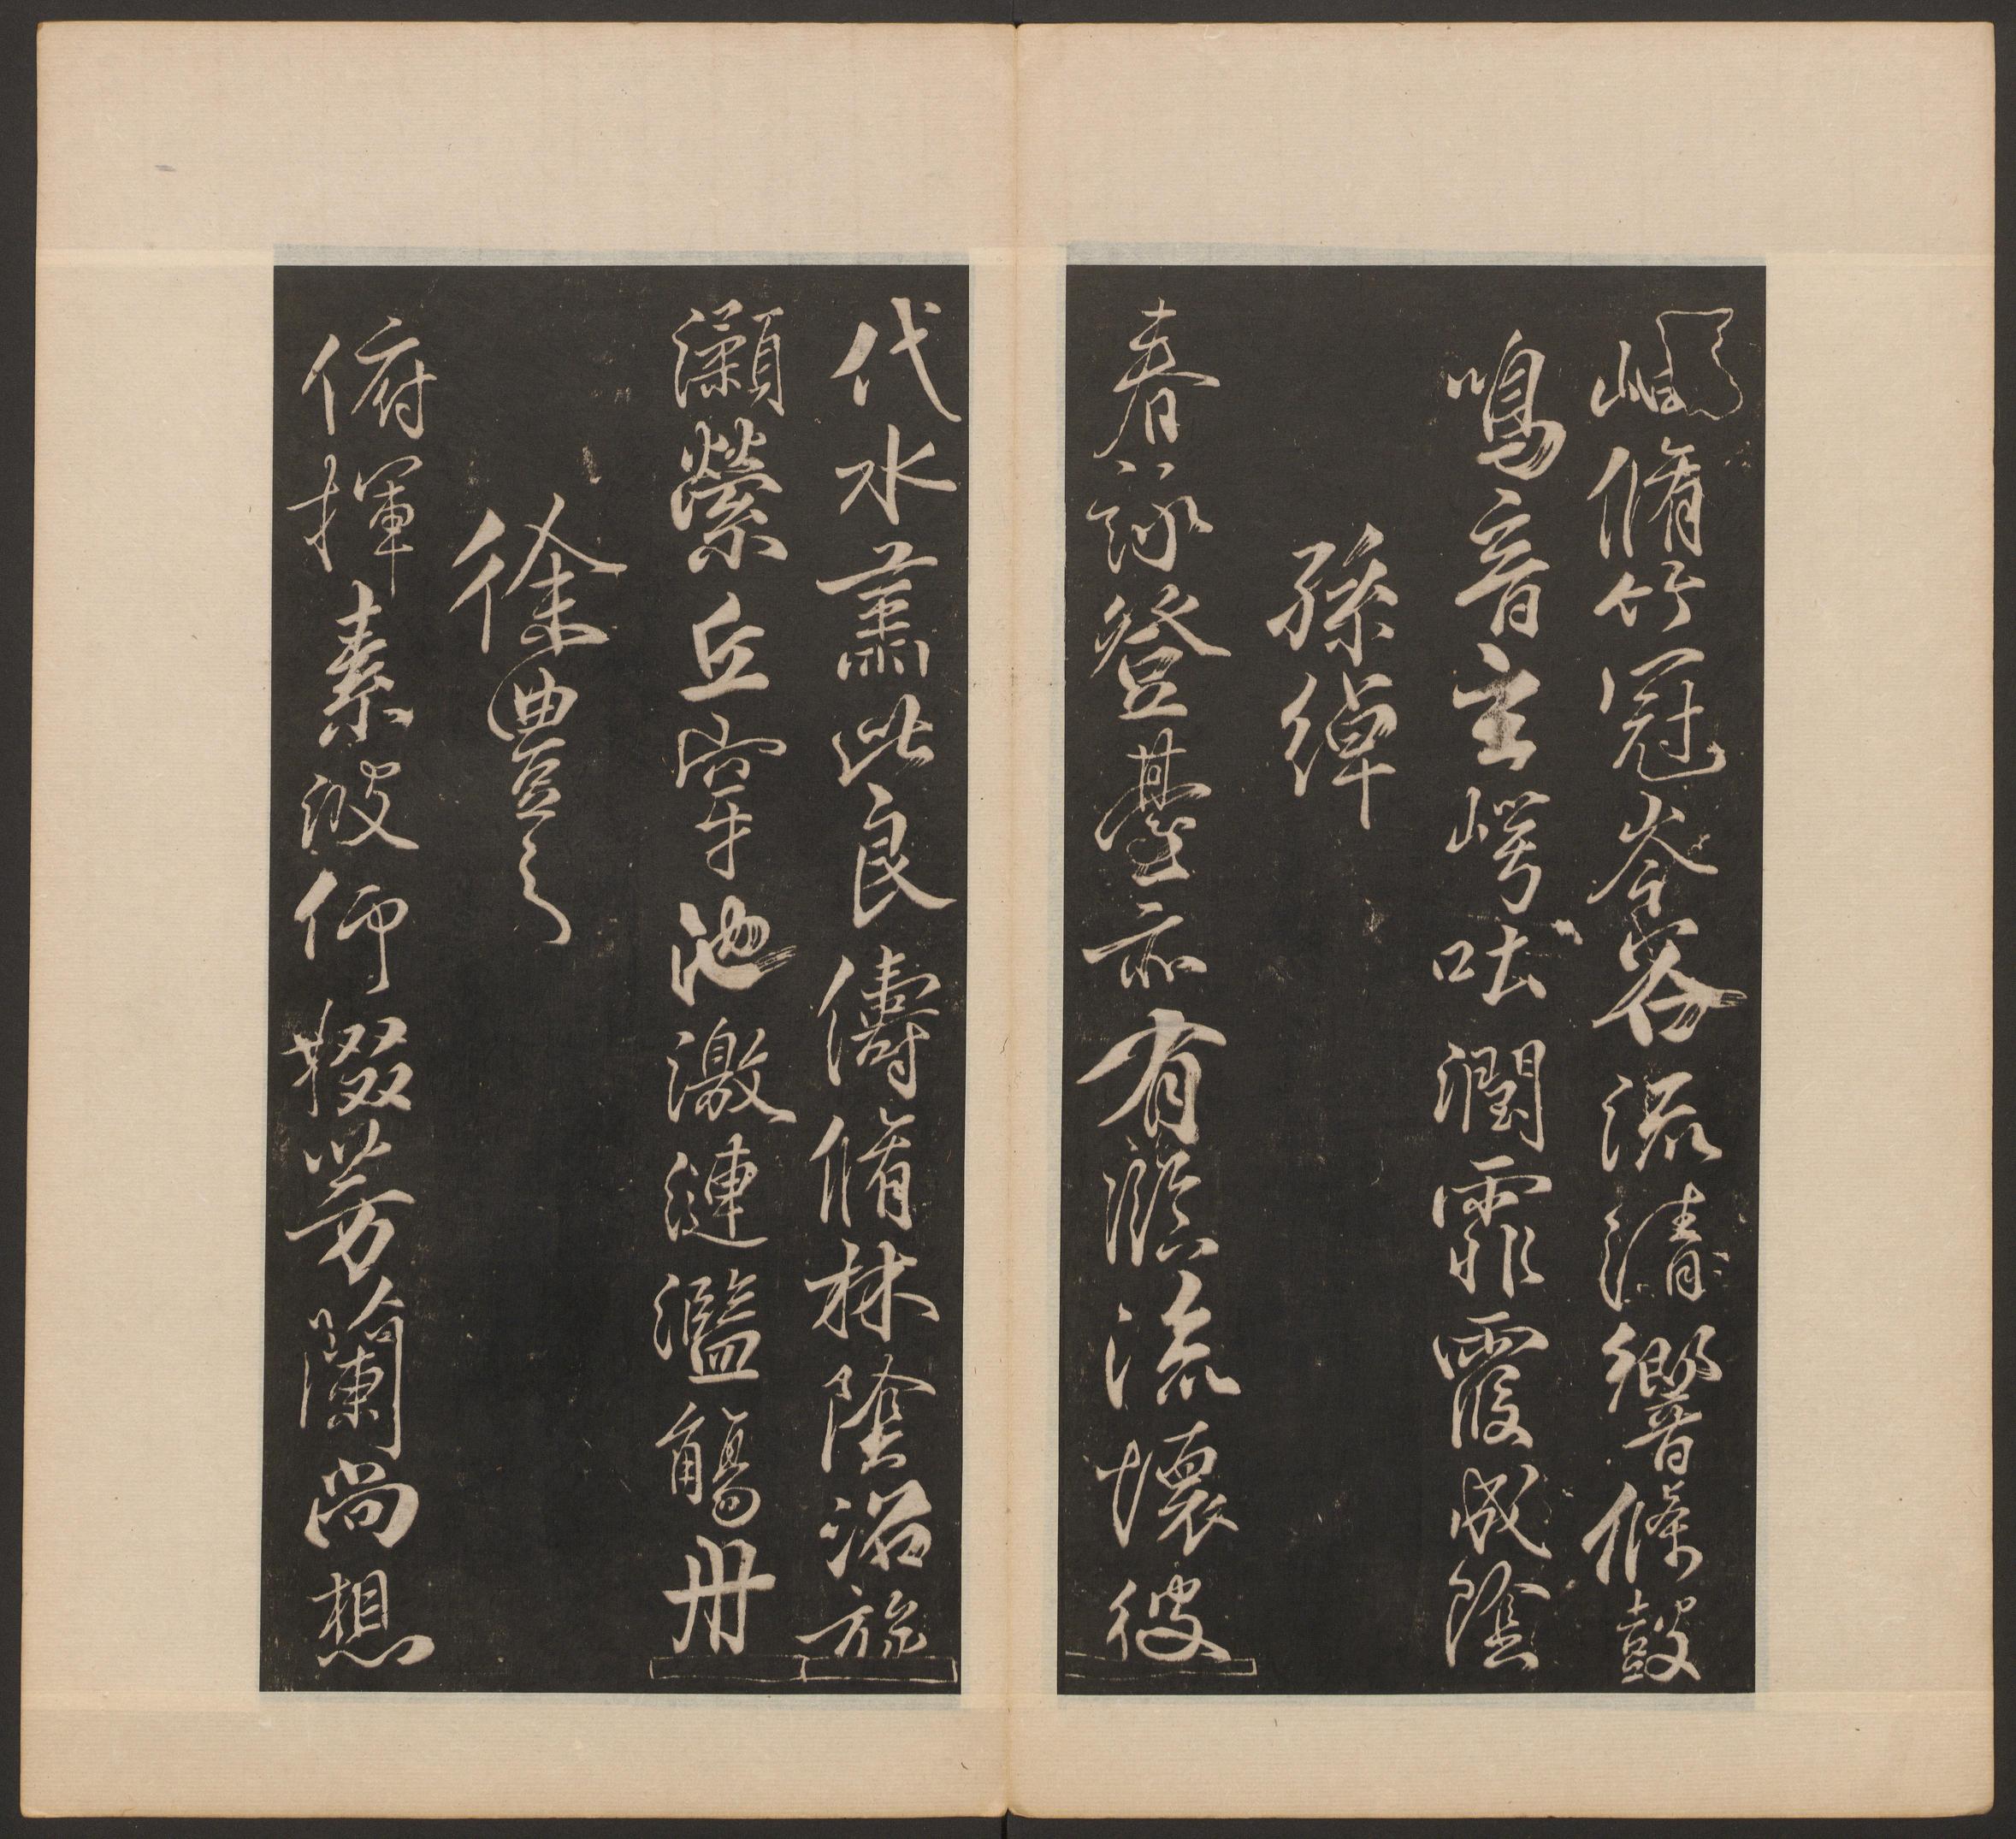 岫脩竹冠岑谷流清響條鼓
鳴音玄崿吐潤霏霞成陰
孫綽
春詠登臺亦有臨流懷彼
代水肅此良儔脩林陰沼旋
瀨縈丘穿池激漣濫觴舟
徐豐之
俯揮素波仰掇芳蘭尚想